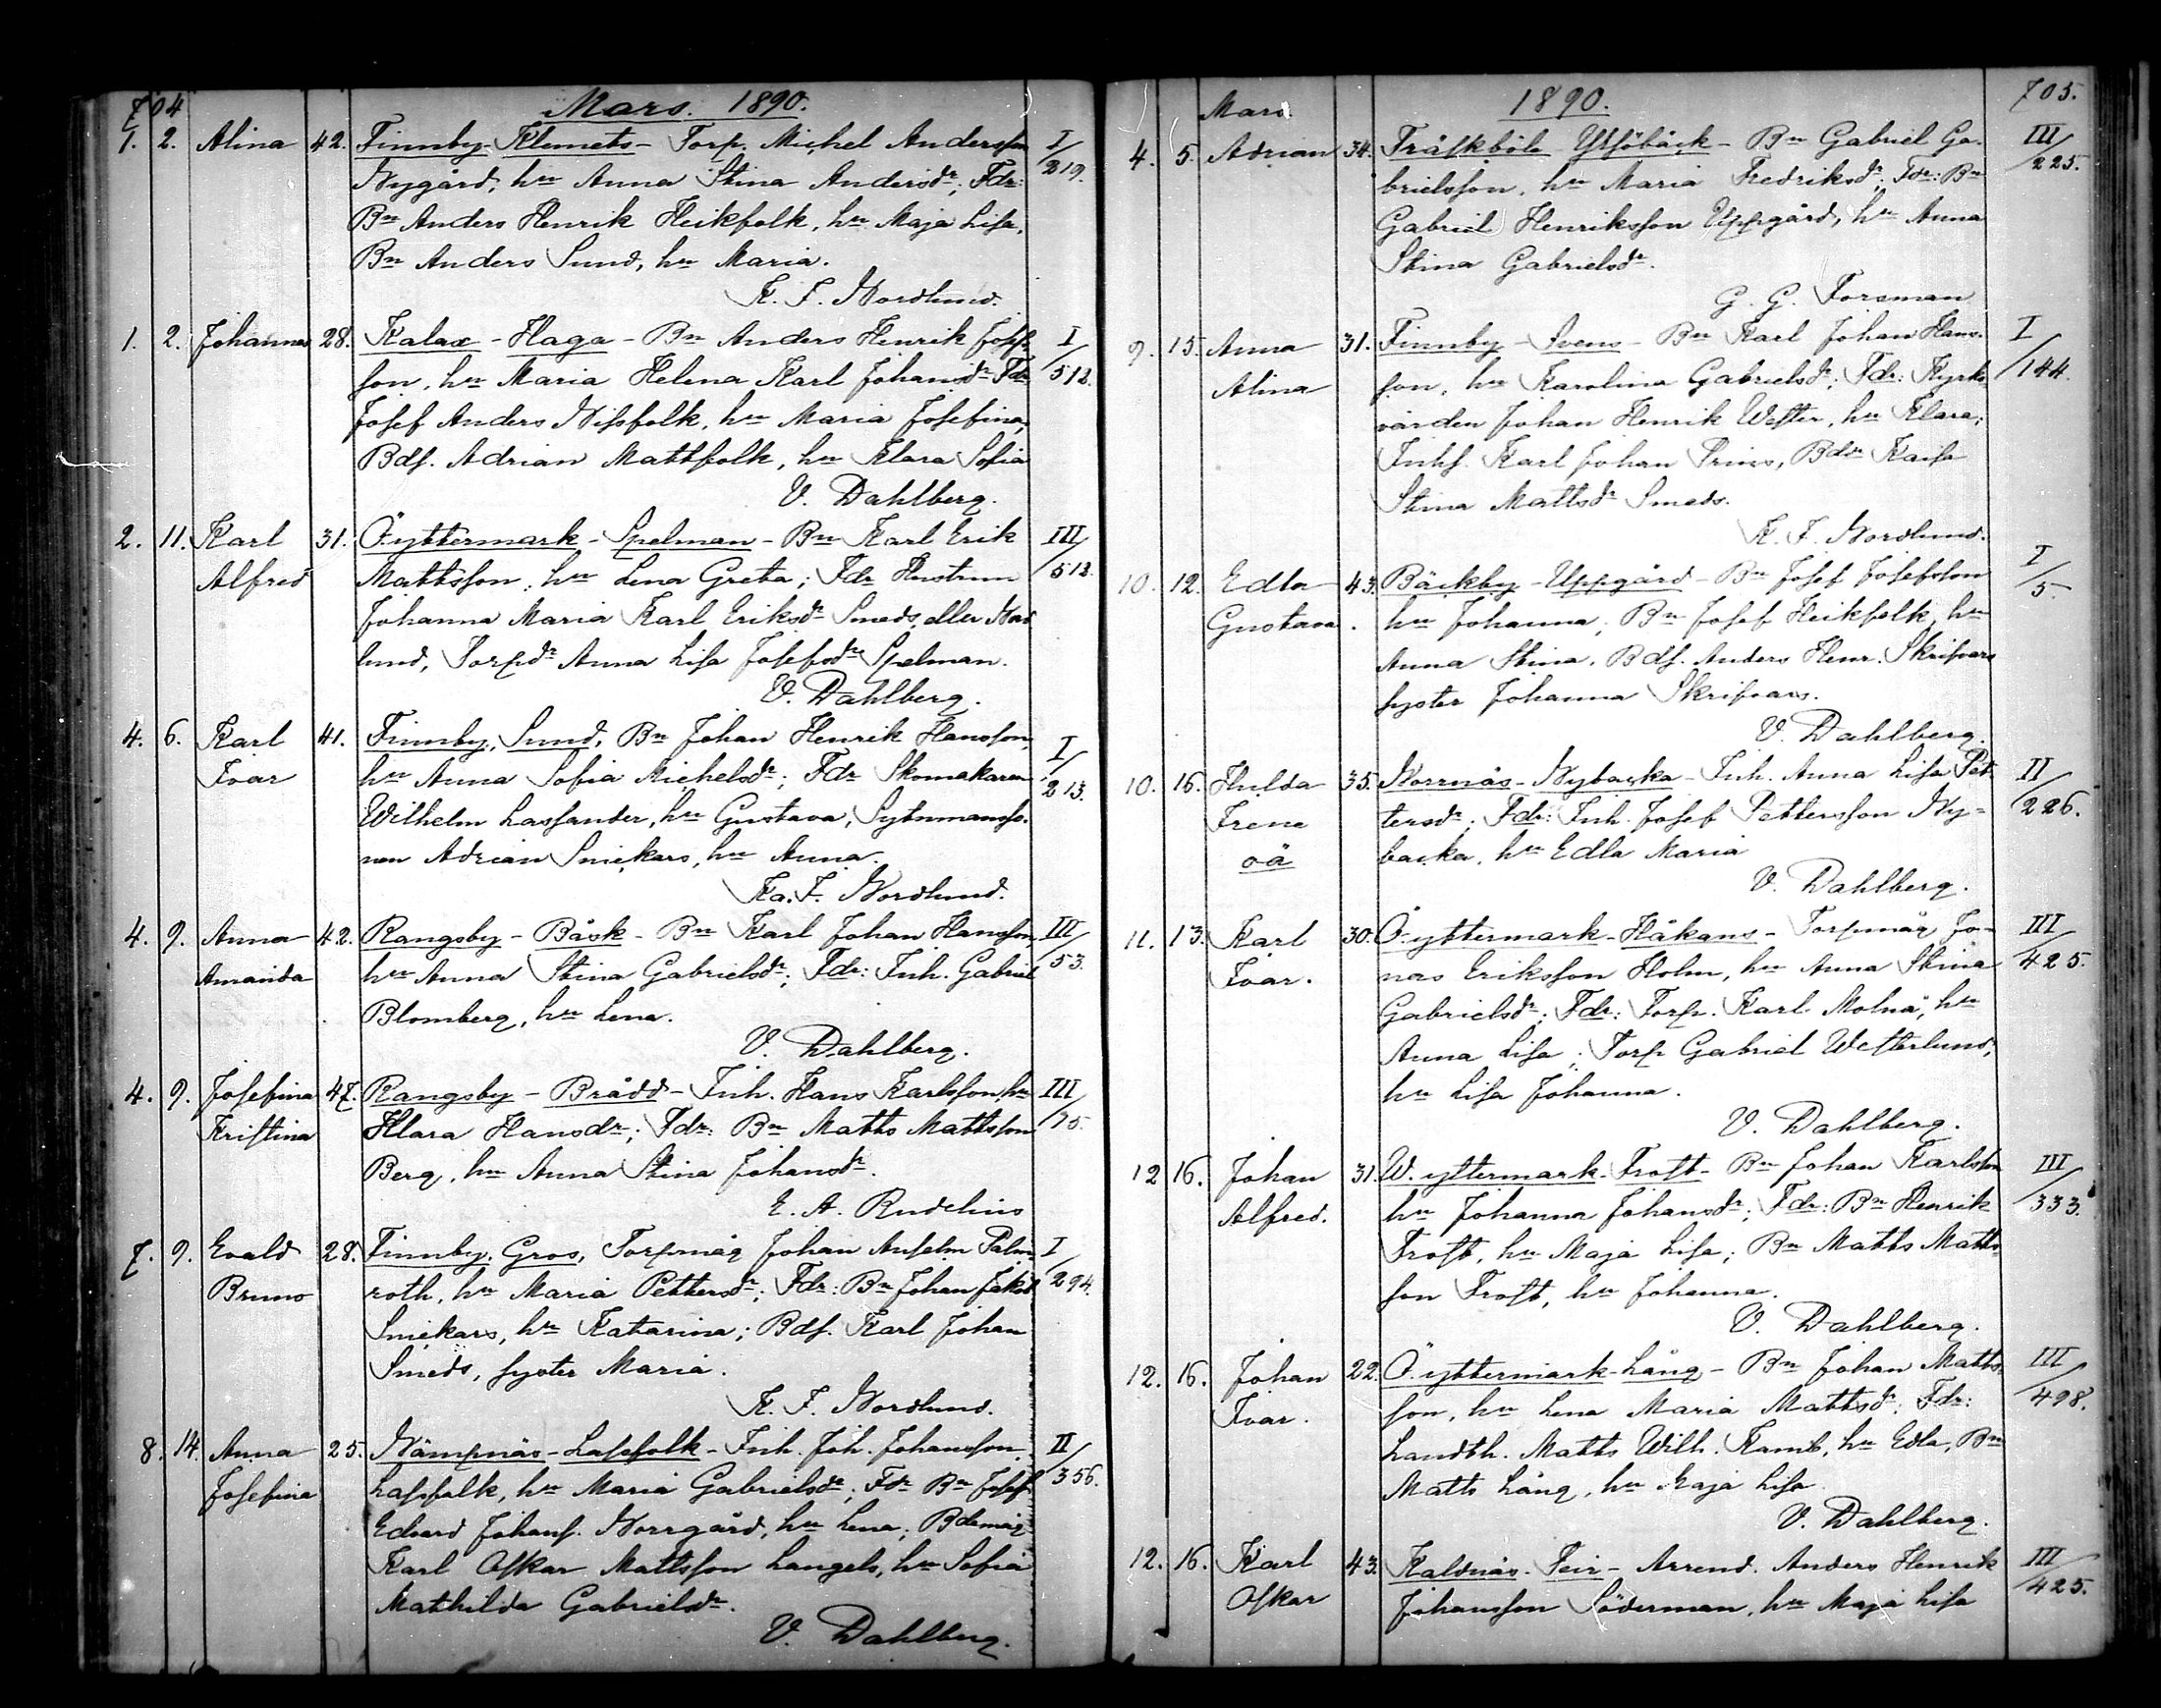 704
Mars. 1890.
1. 2. Alina 42. Finnby-Klemets- Torp. Michel Andersson I/219.
Nygård, hu Anna Stina Andersdr; Fdr:
Bn Anders Henrik Heikfolk, hu Maja Lisa,
Bn Anders Sund, hu Maria.
K. F. Nordlund.
1. 2. Johannes 28. Kalax - Haga - Bn Anders Henrik Josefs- I/512.
son, hu Maria Helena Karl Johansdr Fdr
Josef Anders Nissfolk, hu Maria Josefina,
Bds. Adrian Mattfolk, hu Klara Sofia
V. Dahlberg.
2. 11. Karl 31. Öyttermark - Spelman - Bn Karl Erik III/512.
Alfred Mattsson, hu Lena Greta; Fdr Hustrun
Johanna Maria Karl Eriksdr Smeds, eller Nord
lund, Torpdr Anna Lisa Josefsdr Spelman.
V. Dahlberg.
4. 6. Karl 41. Finnby, Sund, Bn Johan Henrik Hansson, I/213.
Ivar hu Anna Sofia Michelsdr; Fdr Skomakaren
Wilhelm Lassander, hu Gustava, Sytnmansso-
nen Adrian Snickars, hu Anna.
Ka. F. Nordlund.
4. 9. Anna 42. Rangsby - Bäck - Bn Karl Johan Hansson, III/53.
Amanda hu Anna Stina Gabrielsdr; Fdr: Inh. Gabriel
Blomberg, hu Lena.
V. Dahlberg.
4. 9. Josefina 47. Rangsby - Brådd - Inh. Hans Karlsson, hu III/15.
Kristina Klara Hansdr; Fdr: Bn Matts Mattsson
Berg, hu Anna Stina Johansdr.
E. A. Rudelius
7. 9. Evald 28. Finnby, Gros, Torpmåg Johan Anselm Palm I/294.
Bruno roth, hu Maria Pettersdr; Fdr: Bn Johan Jakob
Snickars, hu Katarina; Bds. Karl Johan
Smeds, syster Maria.
K. F. Nordlund.
8. 14. Anna 25. Nämpnäs - Lassfolk - Inh. Joh. Johansson II/356.
Josefina Lassfolk, hu Maria Gabrielsdr; Fdr Bn Josef
Edvard Johans. Norrgård, hu Lena; Bdemåg
Karl Oskar Mattsson Langels, hu Sofia
Mathilda Gabrielsdr.
V. Dahlberg.
Mars 1890. 705.
4. 5. Adrian 34. Träskböle Ytsöbäck - Bn Gabriel Ga- III/225.
brielsson, hu Maria Fredriksdr; Fdr: Bn
Gabriel Henriksson Uppgård, hu Anna
Stina Gabrielsdr.
G. G. Forsman
9. 15. Anna 31. Finnby - Ivens - Bn Karl Johan Hans- I/144.
Alina son, hu Karolina Gabrielsdr; Fdr: Kyrko
värden Johan Henrik Wester, hu Klara;
Inhs. Karl Johan Prins, Bdr Kajsa
Stina Mattsdr Smeds.
K. F. Nordlund.
10. 12. Edla 43. Bäckby - Uppgård - Bn Josef Josefsson I/5.
Gustava. hu Johanna; Bn Josef Heikfolk, hu
Anna Stina. Bds. Anders Henr. Skrifvars
syster Johanna Skrifvars.
V. Dahlberg.
10. 16. Hulda 35. Norrnäs - Nybacka - Inh. Anna Lisa Pet- II/226.
Irene tersdr; Fdr: Inh. Josef Pettersson Ny-
oä backa, hu Edla Maria
V. Dahlberg.
11. 13. Karl 30. Ö. yttermark - Håkans - Torpmåg Jo- III/425.
Ivar. nas Eriksson Holm, hu Anna Stina
Gabrielsdr; Fdr: Torp. Karl Molnä, hu
Anna Lisa; Torp Gabriel Westerlund,
hu Lisa Johanna.
V. Dahlberg.
12 16. Johan 31. W. yttermark - Frost - Bn Johan Karlsson III/333.
Alfred. hu Johanna Johansdr; Fdr: Bn Henrik
Frost, hu Maja Lisa; Bn Matts Matts-
son Frost, hu Johanna.
V. Dahlberg.
12. 16. Johan 22. Ö. yttermark - Lång - Bn Johan Matts- III/498.
Ivar. son, hu Lena Maria Mattsdr; Fdr:
Landth. Matts Wilh. Kamb, hu Edla, Bn
Matts Lång, hu Maja Lisa
V. Dahlberg.
12. 16. Karl 43. Kaldnäs - Teir - Arrend. Anders Henrik III/425.
Oskar Johansson Söderman, hu Maja Lisa